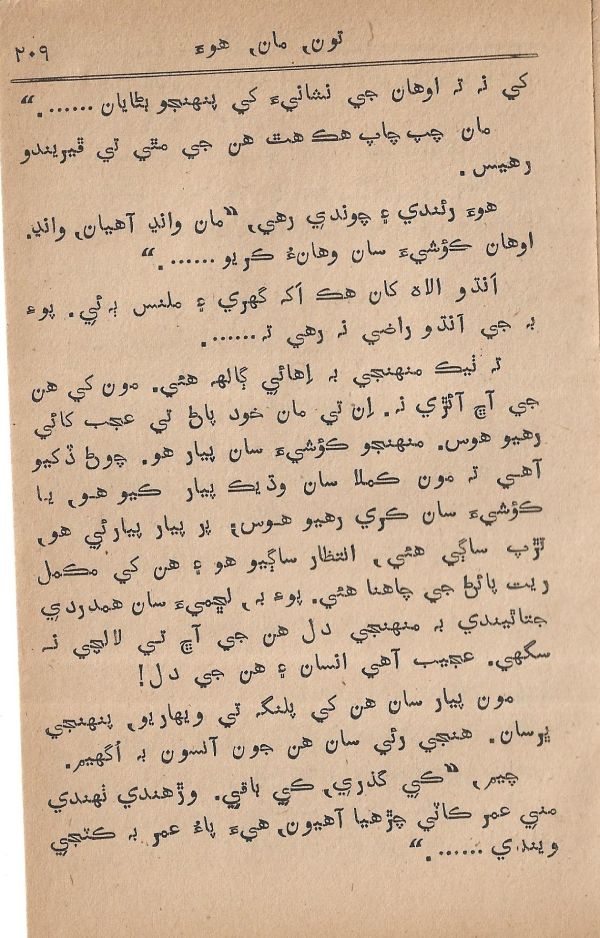 تون, مان, هوءَ
٢٠٩
کي نہ تہ اوهان جي نشانيءَ کي پنهنجو بڻايان ......."
مان چپ چاپ هڪ هٿ هن جي مٿي تي ڦيريندو
رهيس.
هوءَ رئندي ۽ چوندي رهي, "مان وانڍ آهيان, وانڍ.
اوهان ڪؤشيءَ سان وهانءُ ڪريو ......."
آنڌو الاه کان هڪ اَکہ گهري ۽ ملنس ٻہ ئي. پوءِ
بہ جي آنڌو راضي نہ رهي تہ.......
تہ ٺيڪ منهنجي بہ اِهائي ڳالهہ هئي. مون کي هن
جي آڇ آئڙي نہ. اِن تي مان خود پاڻ تي عجب کائي
رهيو هوس. منهنجو ڪؤشيءَ سان پيار هو. چوڻ ڏکيو
آهي تہ مون ڪملا سان وڌيڪ پيار ڪيو هو, يا
ڪؤشيءَ سان ڪري رهيو هوس; پر پيار پيارئي هو,
تڙپ ساڳي هئي, انتظار ساڳيو هو ۽ هن کي مڪمل
ريت پائڻ جي چاهنا هئي. پوءِ بہ, لڇميءَ سان همدردي
جتائيندي بہ منهنجي دل هن جي آڇ تي لالچي نہ
سگهي. عجيب آهي انسان ۽ هن جي دل!
مون پيار سان هن کي پلنگہ تي ويهاريو, پنهنجي
ڀرسان. هنجي رئي سان هن جون آنسون بہ اُگهيم.
چيم, "ڪي گذري, ڪي باقي. وڙهندي ٺهندي
مني عمر کائي چڙهيا آهيون, هيءَ پاءُ عمر بہ ڪٽجي
ويندي ......."